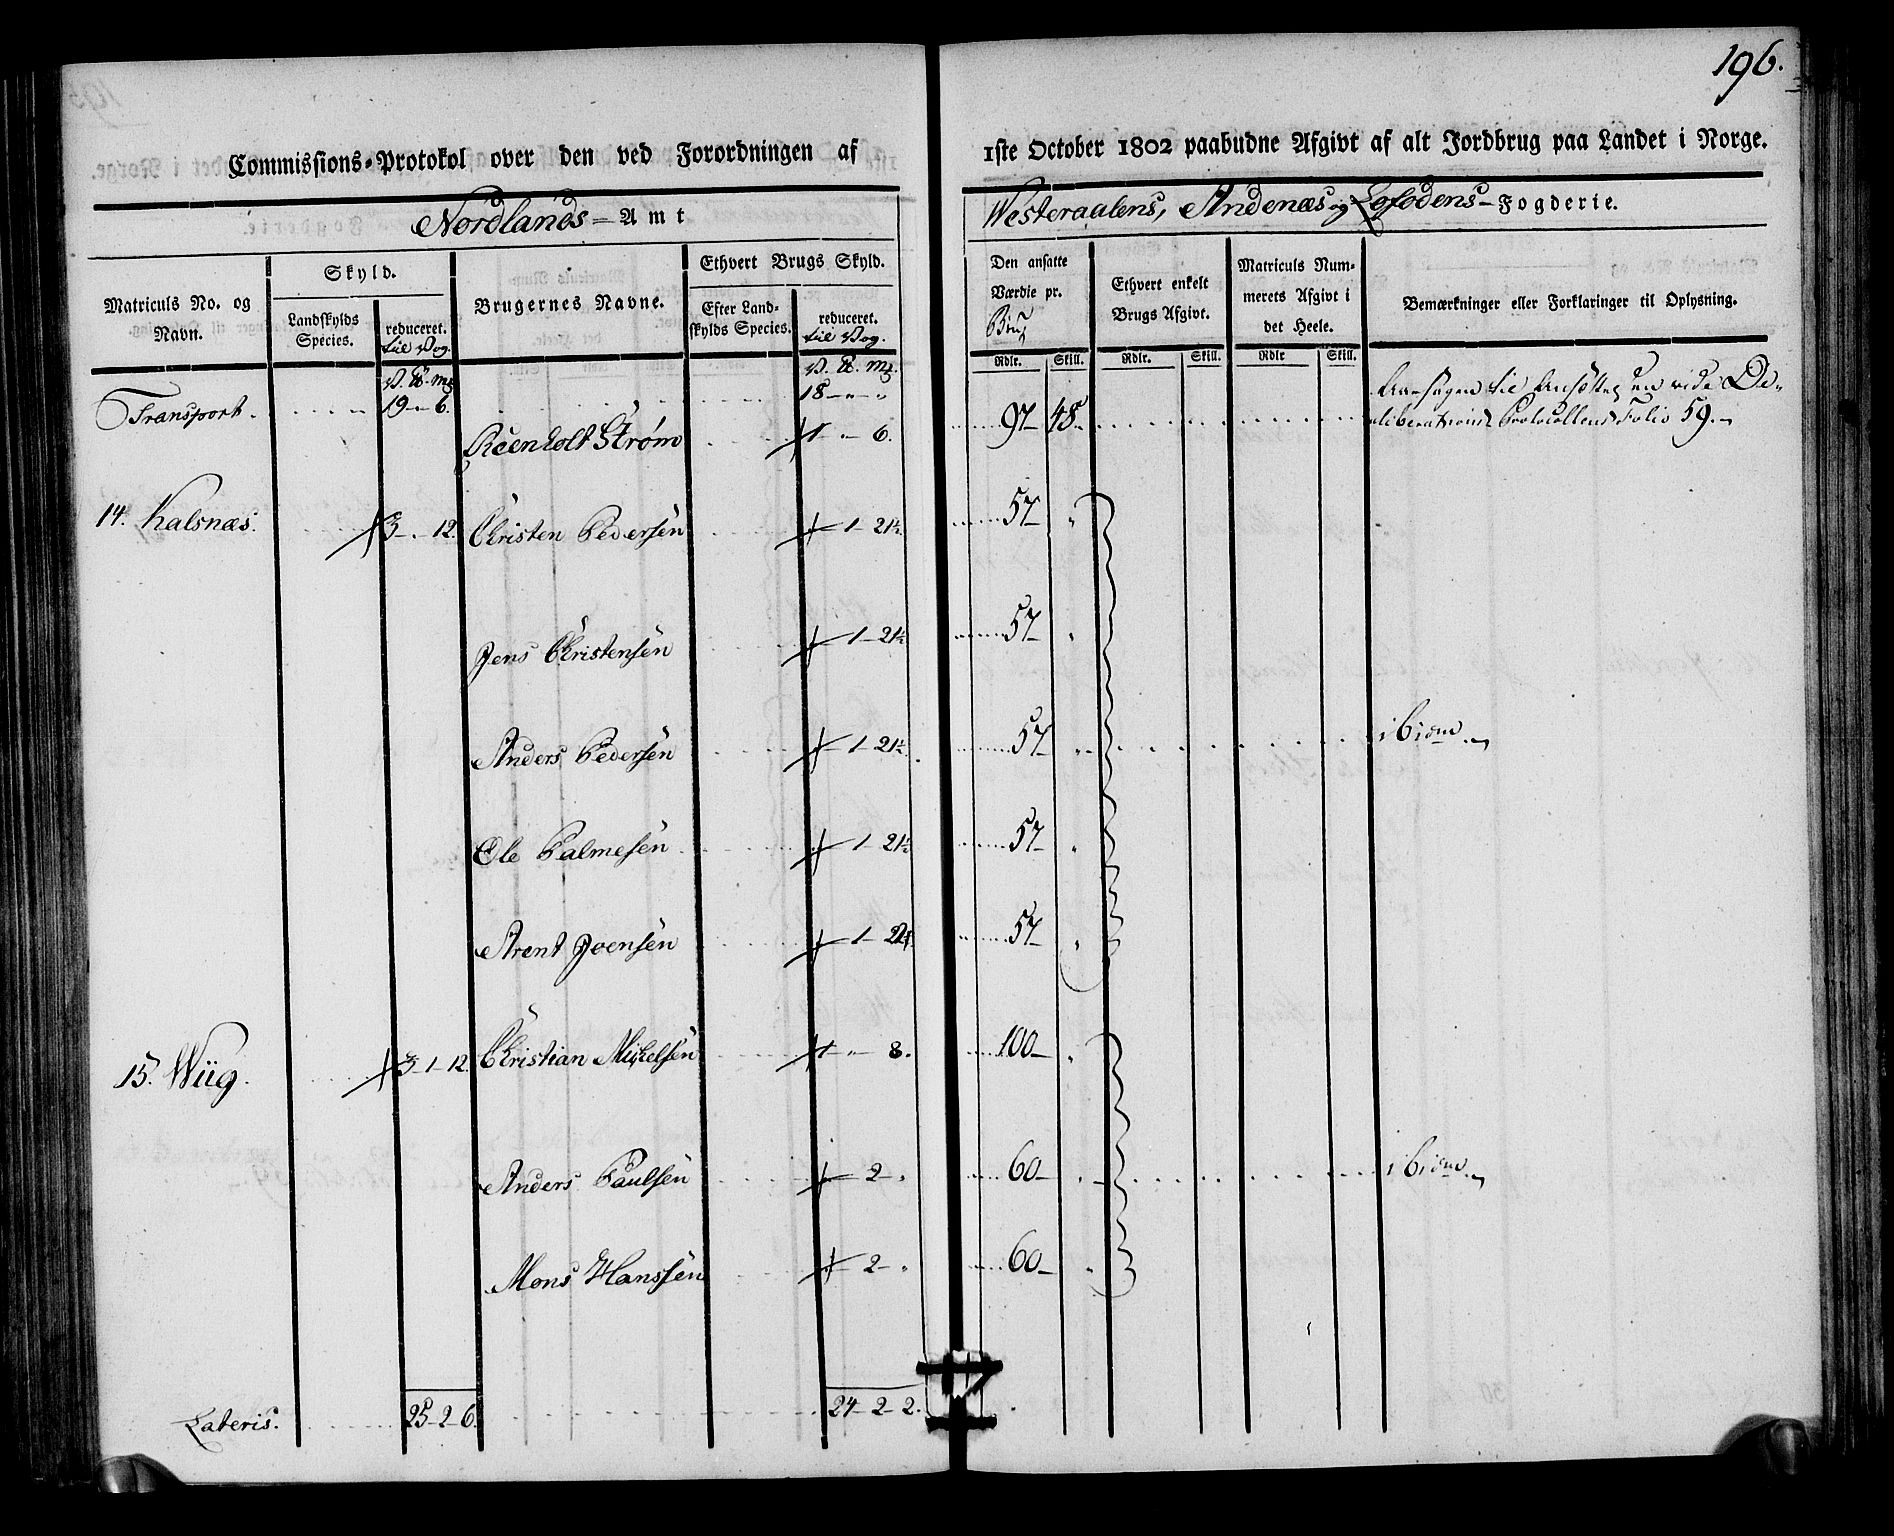 196.
Commissions-Protokol over den ved Forordningen af 1ste October 1802 paabudne Afgivt af alt Jordbrug paa Landet i Norge.
Nordlands-Amt Westeraalens, Andenæs og Lofodens-Fogderie.
Matriculs No. og Navn.
Skyld.
Landskylds Species.
reduceret. til Vog.
Brugernes Navne.
Ethvert Brugs Skyld.
Efter Landskylds Species.
reduceret. til Vog.
Den ansatte Værdie pr. Brug
Ethvert enkelt Brugs Afgivt.
Matriculs Nummerets Afgivt i det Heele.
Bemærkninger eller Forklaringer til Oplysning.
Rdlr. Skill. Rdlr. Skill. Rdlr Skill.
V. ℔. mk V. ℔. mk.
Transport. 19 - " - 6. 18 - " - "
Reenholt Strøm 1 - " - 6. 97 - 48. Aarsagen til Ansættelsen vide Deliberations Protocollens Folio 59.
14. Kalsnæs. 3 - " - 12. Christen Pedersen 1 - 21½ 57 - "
Jens Christensen 1 - 21½ 57 - "
Anders Pedersen 1 - 21½ 57 - " ibidem.
Ole Palmesen 1 - 21½ 57 - "
Arent Joensen 1 - 21½ 57 - "
15. Wiig. 3 - 1 - 12. Christian Mikelsen 1 - " - 8. 100 - "
Anders Paulsen 2 - " 60 - " ibidem.
Mons Hanssen 2 - " 60 - "
Lateris. 25 - 2 - 6. 24 - 2 - 2.